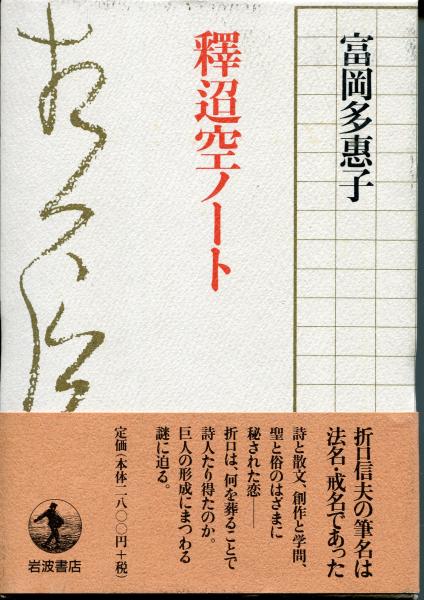 富岡多惠子
釋迢空ノート
折口信夫の筆名は
法名・戒名であった
詩と散文、創作と学問、
聖と俗のはざまに
秘された恋——
折口は、何を葬ることで
詩人たり得たのか。
巨人の形成にまつわる
謎に迫る。
定価(本体二八〇〇円+税)
岩波書店